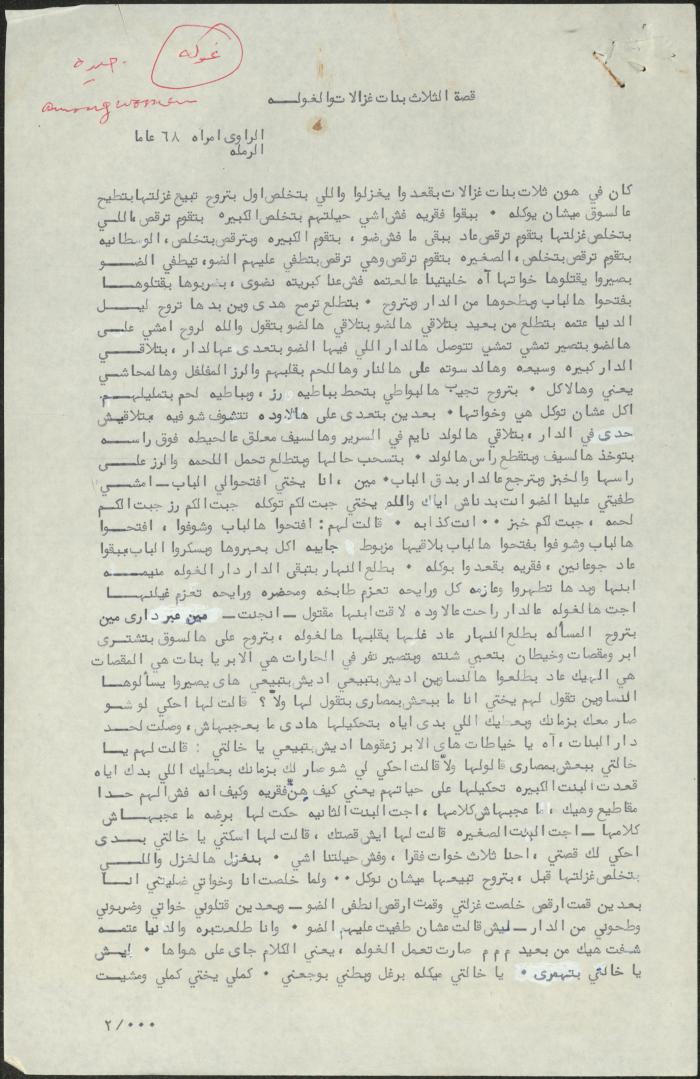 غوله
جيده
among women
قصة الثلاث بنات غزالات والغولـــه
الراوى امراه ٦٨ عاما
الرمله
كان في هون ثلاث بنات غزالات بقعدوا يغزلوا واللي بتخلص اول بتروح تبيع غزلتها بتطيح
عالسوق ميشان يوكله ٠ ببقوا فقريه فش اشي حيلتهم بتخلص الكبيره بتقوم ترقص ، اللـي
بتخلص غزلتها بتقوم ترقص عاد ببقى ما فش ضو ، بتقوم الكبيره وبترقص بتخلص ، الوسطانيه
بتقوم ترقص بتخلص ، الصغيره بتقوم ترقص وهي ترقص بتطفي عليهم الضو ، تيطفي الضـــو
بصيروا يقتلوها خواتها آه خليتينا عالعتمه فش عنا كبريته نضوى ، بضربوها بقتلوهـا
بفتحوا هالباب وبطحوها من الدار وبتروح ٠ بتطلع ترمح هدى وين بدها تروح ليـــل
الدنيا عتمه بتطلع من بعيد بتلاقي هالضو بتلاقي هالضو بتقول والله لروح امشي علـــى
هالضو بتصير تمشي تمشي تتوصل هالدار اللي فيها الضو بتعدى عهالدار ، بتلاقـــي
الدار كبيره وسيعه وهالدسوته على هالنار وهاللحم بقلبهم والرز المفلفل وهالمحاشي
يعني وهالاكل ٠ بتروح تجيب هالبواطي بتحط بباطيه رز ، وبباطيه لحم بتمليلهــم
اكل عشان توكل هي وخواتها ٠ بعدين بتعدى على هالاوده تتشوف شو فيه ،بتلاقيش
حدى في الدار ، بتلاقي هالولد نايم في السرير وهالسيف معلق عالحيطه فوق راســه
بتوخذ هالسيف وبتقطع راس هالولد ٠ بتسحب حالها وبتطلع تحمل اللحمه والرز علـــى
راسها والخبز وبترجع عالدار بدق الباب ٠ مين ، انا يختي افتحوالي الباب ــ امشــي
طفيتي علينا الضو انت بدناش اياك والله يختي جبت لكم توكله جبت الكم رز جبت الكــم
لحمه ، جبت لكم خبز ٠٠ انت كذابه ٠ قالت لهم : افتحوا هالباب وشوفوا ، افتحـــوا
هالباب وشوفوا بفتحوا هالباب بلاقيها مزبوط جايبه اكل بعبروها وبسكروا الباب ،ببقوا
عاد جوعانين ، فقريه بقعدوا بوكله ٠ بطلع النهار بتبقى الدار دار الغوله منيمـــه
ابنها وبدها تطهروا وعازمه كل ورايحه تعزم طابخه ومحضره ورايحه تعزم غيلنهـــا
اجت هالغوله عالدار راحت عالاوده لاقت ابنها مقتول ــ انجنت ــ مين عبر دارى مين
بتروح المسأله بطلع النهار عاد غلبها بقلبها هالغوله ، بتروح على هالسوق بتشتـرى
ابر ومقصات وخيطان بتعبي شنته وبتصير تفر في الحارات هي الابر يا بنات هي المقصات
هي الهيك عاد بطلعوا هالنساوين اديش بتبيعي اديش بتبيعي هاى يصيروا يسألوهــا
النساوين تقول لهم يختي انا ما ببعش بمصارى بتقول لها ولأ ؟ قالت لها احكي لو شـو
صار معك بزمانك وبعطيك اللي بدى اياه بتحكيلها هادى ما بعجبهاش ، وصلت لحـــد
دار البنات ، آه يا خياطات هاى الابر زعقوها اديش بتبيعي يا خالتي : قالت لهم يـــا
خالتي ببعش بمصارى قالولها ولأ قالت احكي لي شو صار لك بزمانك بعطيك اللي بدك اياه
قعدت البنت الكبيره تحكيلها على حياتهم يعني كيف هنّ فقريه وكيف انه فش الهم حــدا
مقاطيع وهيك ، ما عجبهاش كلامها ، اجت البنت الثانيه حكت لها برضه ما عجبهــــاش
كلامها ــ اجت البنت الصغيره قالت لها ايش قصتك ، قالت لها اسكتي يا خالتي بـــدى
احكي لك قصتي ، احنا ثلاث خوات فقرا ، وفش حيلتنا اشي ٠ بنغزل هالغزل واللـــي
بتخلص غزلتها قبل ، بتروح تبيعها ميشان نوكل ٠٠ ولما خلصت انا وخواتي ضليتني انــا
بعدين قمت ارقص خلصت غزلتي وقمت ارقص انطفى الضو ــ وبعدين قتلوني خواتي وضربوني
وطحوني من الدار ــ ليش قالت عشان طفيت عليهم الضو ٠ وانا طلعت بره والدنيا عتمــه
شفت هيك من بعيد م م م صارت تعمل الغوله ، يعني الكلام جاى على هواها ٠ ايــش
يا خالتي بتهمرى ٠ يا خالتي ميكله برغل وبطني بوجعني ٠ كملي يختي كملي ومشيــت
٢/٠٠٠